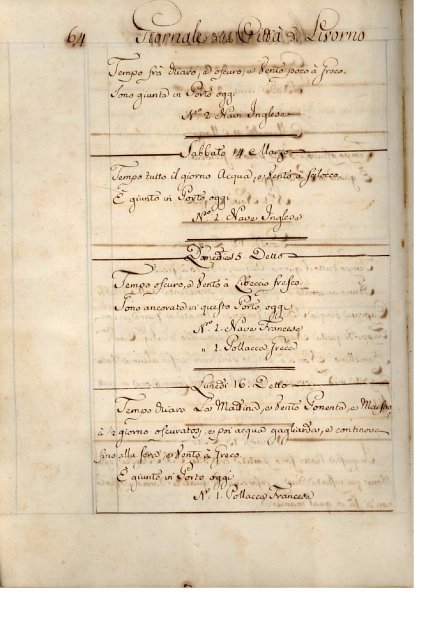 64 Giornale della Città di Livorno
Tempo frà chiaro, ed oscuro, e Vento poco à Greco.
Sono giunte in Porto oggi
N.° 2. Navi Inglese
Sabbato 14 Marzo
Tempo tutto il giorno Acqua, e Vento à Scilocco.
E giunto in Porto oggi
N.° 1. Nave Inglese
Domenica 15. Detto
Tempo oscuro, e Vento à Libeccio fresco.
Sono ancorate in questo Porto oggi
N.° 1. Nave Francese
" 1. Pollacca Greca
Lunedi 16. Detto
Tempo chiaro La Mattina, e Vento Ponente, e Maestro,
à ½ giorno oscuratosi, e poi acqua gagliarda, e continove
fino alla sera, e Vento à Greco
E giunto in Porto oggi
N.° 1. Pollacca Francese